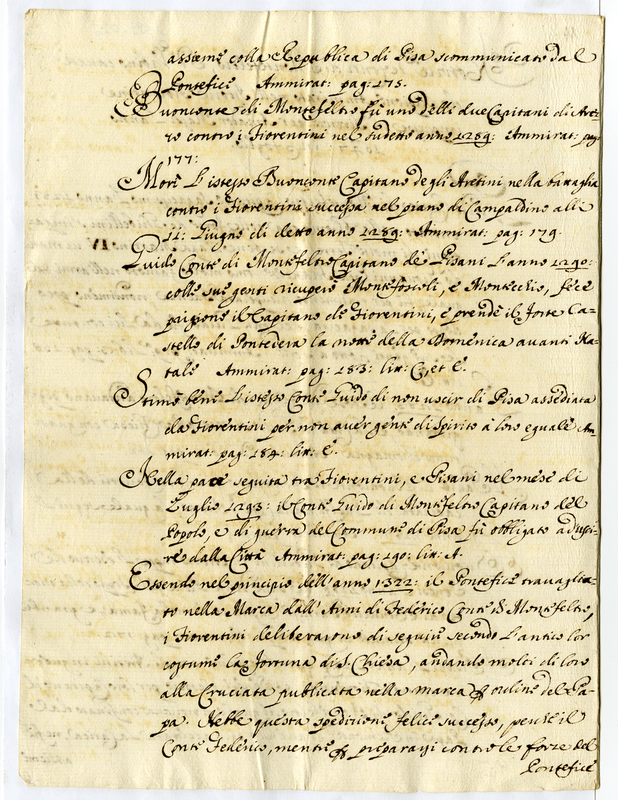 assieme colla Republica di Pisa scommunicato dal
Pontefice Ammirat: pag: 175.
Buonconte di Montefeltro fù uno delli due Capitani di Arez-
zo contro i Fiorentini nel sudetto anno 1289: Ammirat: pag:
177:
Morì l'istesso Buonconte Capitano degli Aretini nella battaglia
contro i Fiorentini successa nel piano di Campaldino alli
11: Giugno di detto anno 1289: Ammirat: pag: 179.
Guido Conte di Montefeltro Capitano de Pisani l'anno 1290:
colle sue genti ricuperò Montefoscoli, e Montecchio, fece
prigione il Capitano de Fiorentini, e prende il forte Ca-
stello di Pontedera la notte della Domenica avanti Na-
tale Ammirat: pag: 183: litt: C, et E.
Stimò bene l'istesso Conte Guido di non uscir di Pisa assediata
da Fiorentini per non aver gente di spirito à loro eguale Am-
mirat: pag: 184: litt: E.
Nella pace seguita tra Fiorentini, e Pisani nel mese di
Luglio 1293: il Conte Guido di Montefeltro Capitano del
Popolo, e di guerra del Commune di Pisa fù obbligato ad usci-
re dalla Città Ammirat: pag: 190: litt: A.
Essendo nel principio dell'anno 1322: il Pontefice travaglia-
to nella Marca dall'Armi di Federico Conte di Montefeltro,
i Fiorentini deliberarono di seguire secondo l'antico lor
costume la fortuna di S. Chiesa, andando molti di loro
alla Cruciata publicata nella marca per ordine del Pa-
pa. Hebbe questa spedizione felice successo, perche il
Conte Federico, mentre per prepararsi contro le forze del
Pontefice